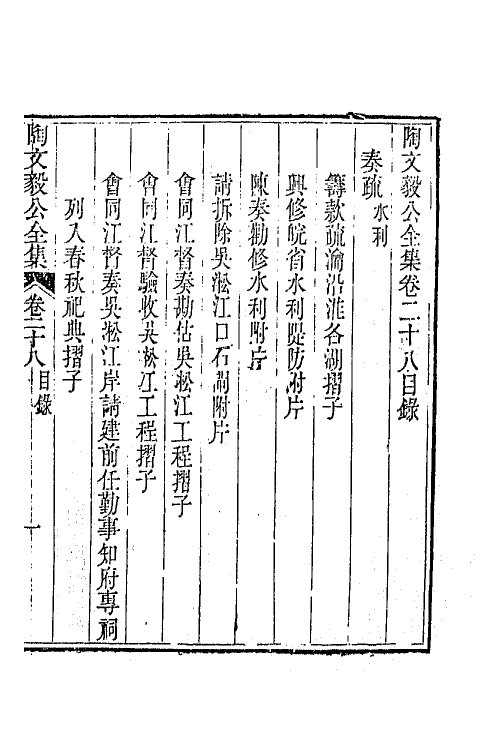 陶文毅公全集卷二十八目錄
奏疏水利
籌款疏瀹沿淮各湖摺子
興修皖省水利隄防附片
陳奏勸修水利附片
請拆除吳淞江口石閘附片
會同江督奏勘估吳淞江工程摺子
會同江督驗收吳淞江工程摺子
會同江督奏吳淞江岸請建前任勤事知府專祠
列入春秋祀典摺子
陶文毅公全集 卷二十八 目錄 一